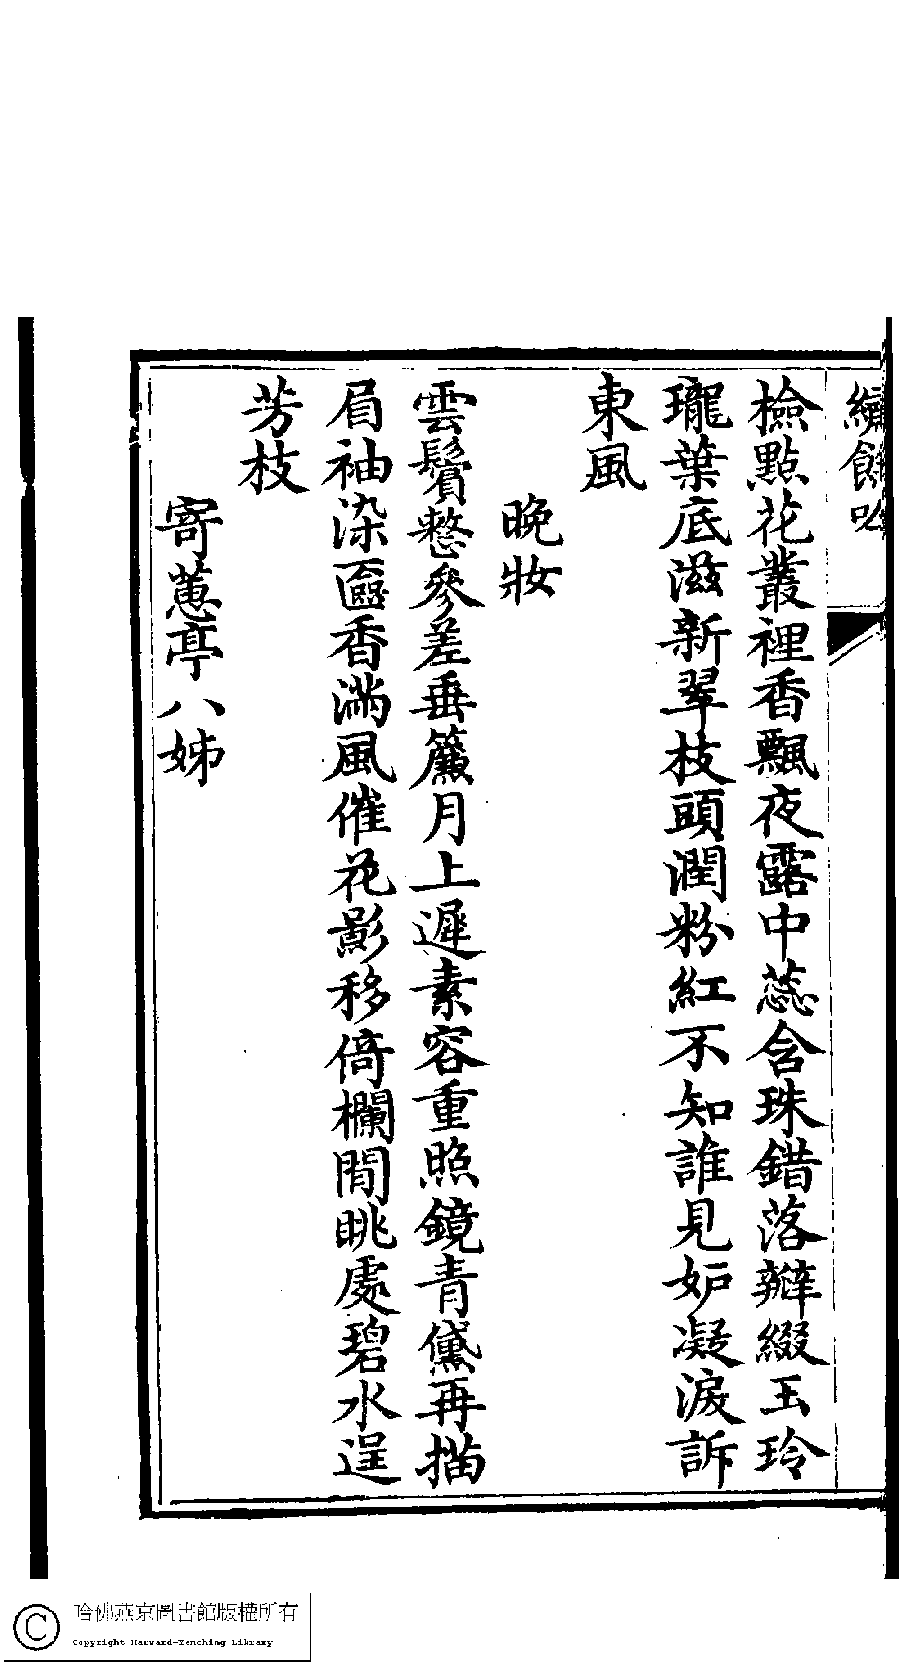 繡餘吟
檢點花叢裡香飄夜露中蕊含珠錯落瓣綴玉玲
瓏葉底滋新翠枝頭潤粉紅不知誰見妒凝淚訴
東風
晚妝
雲鬟整參差垂簾月上遲素容重照鏡青黛再描
眉袖染匳香滿風催花影移倚欄閒眺處碧水逞
芳枝
寄蕙亭八姊
哈佛燕京圖書館版權所有
Copyright Harvard-Yenching Library